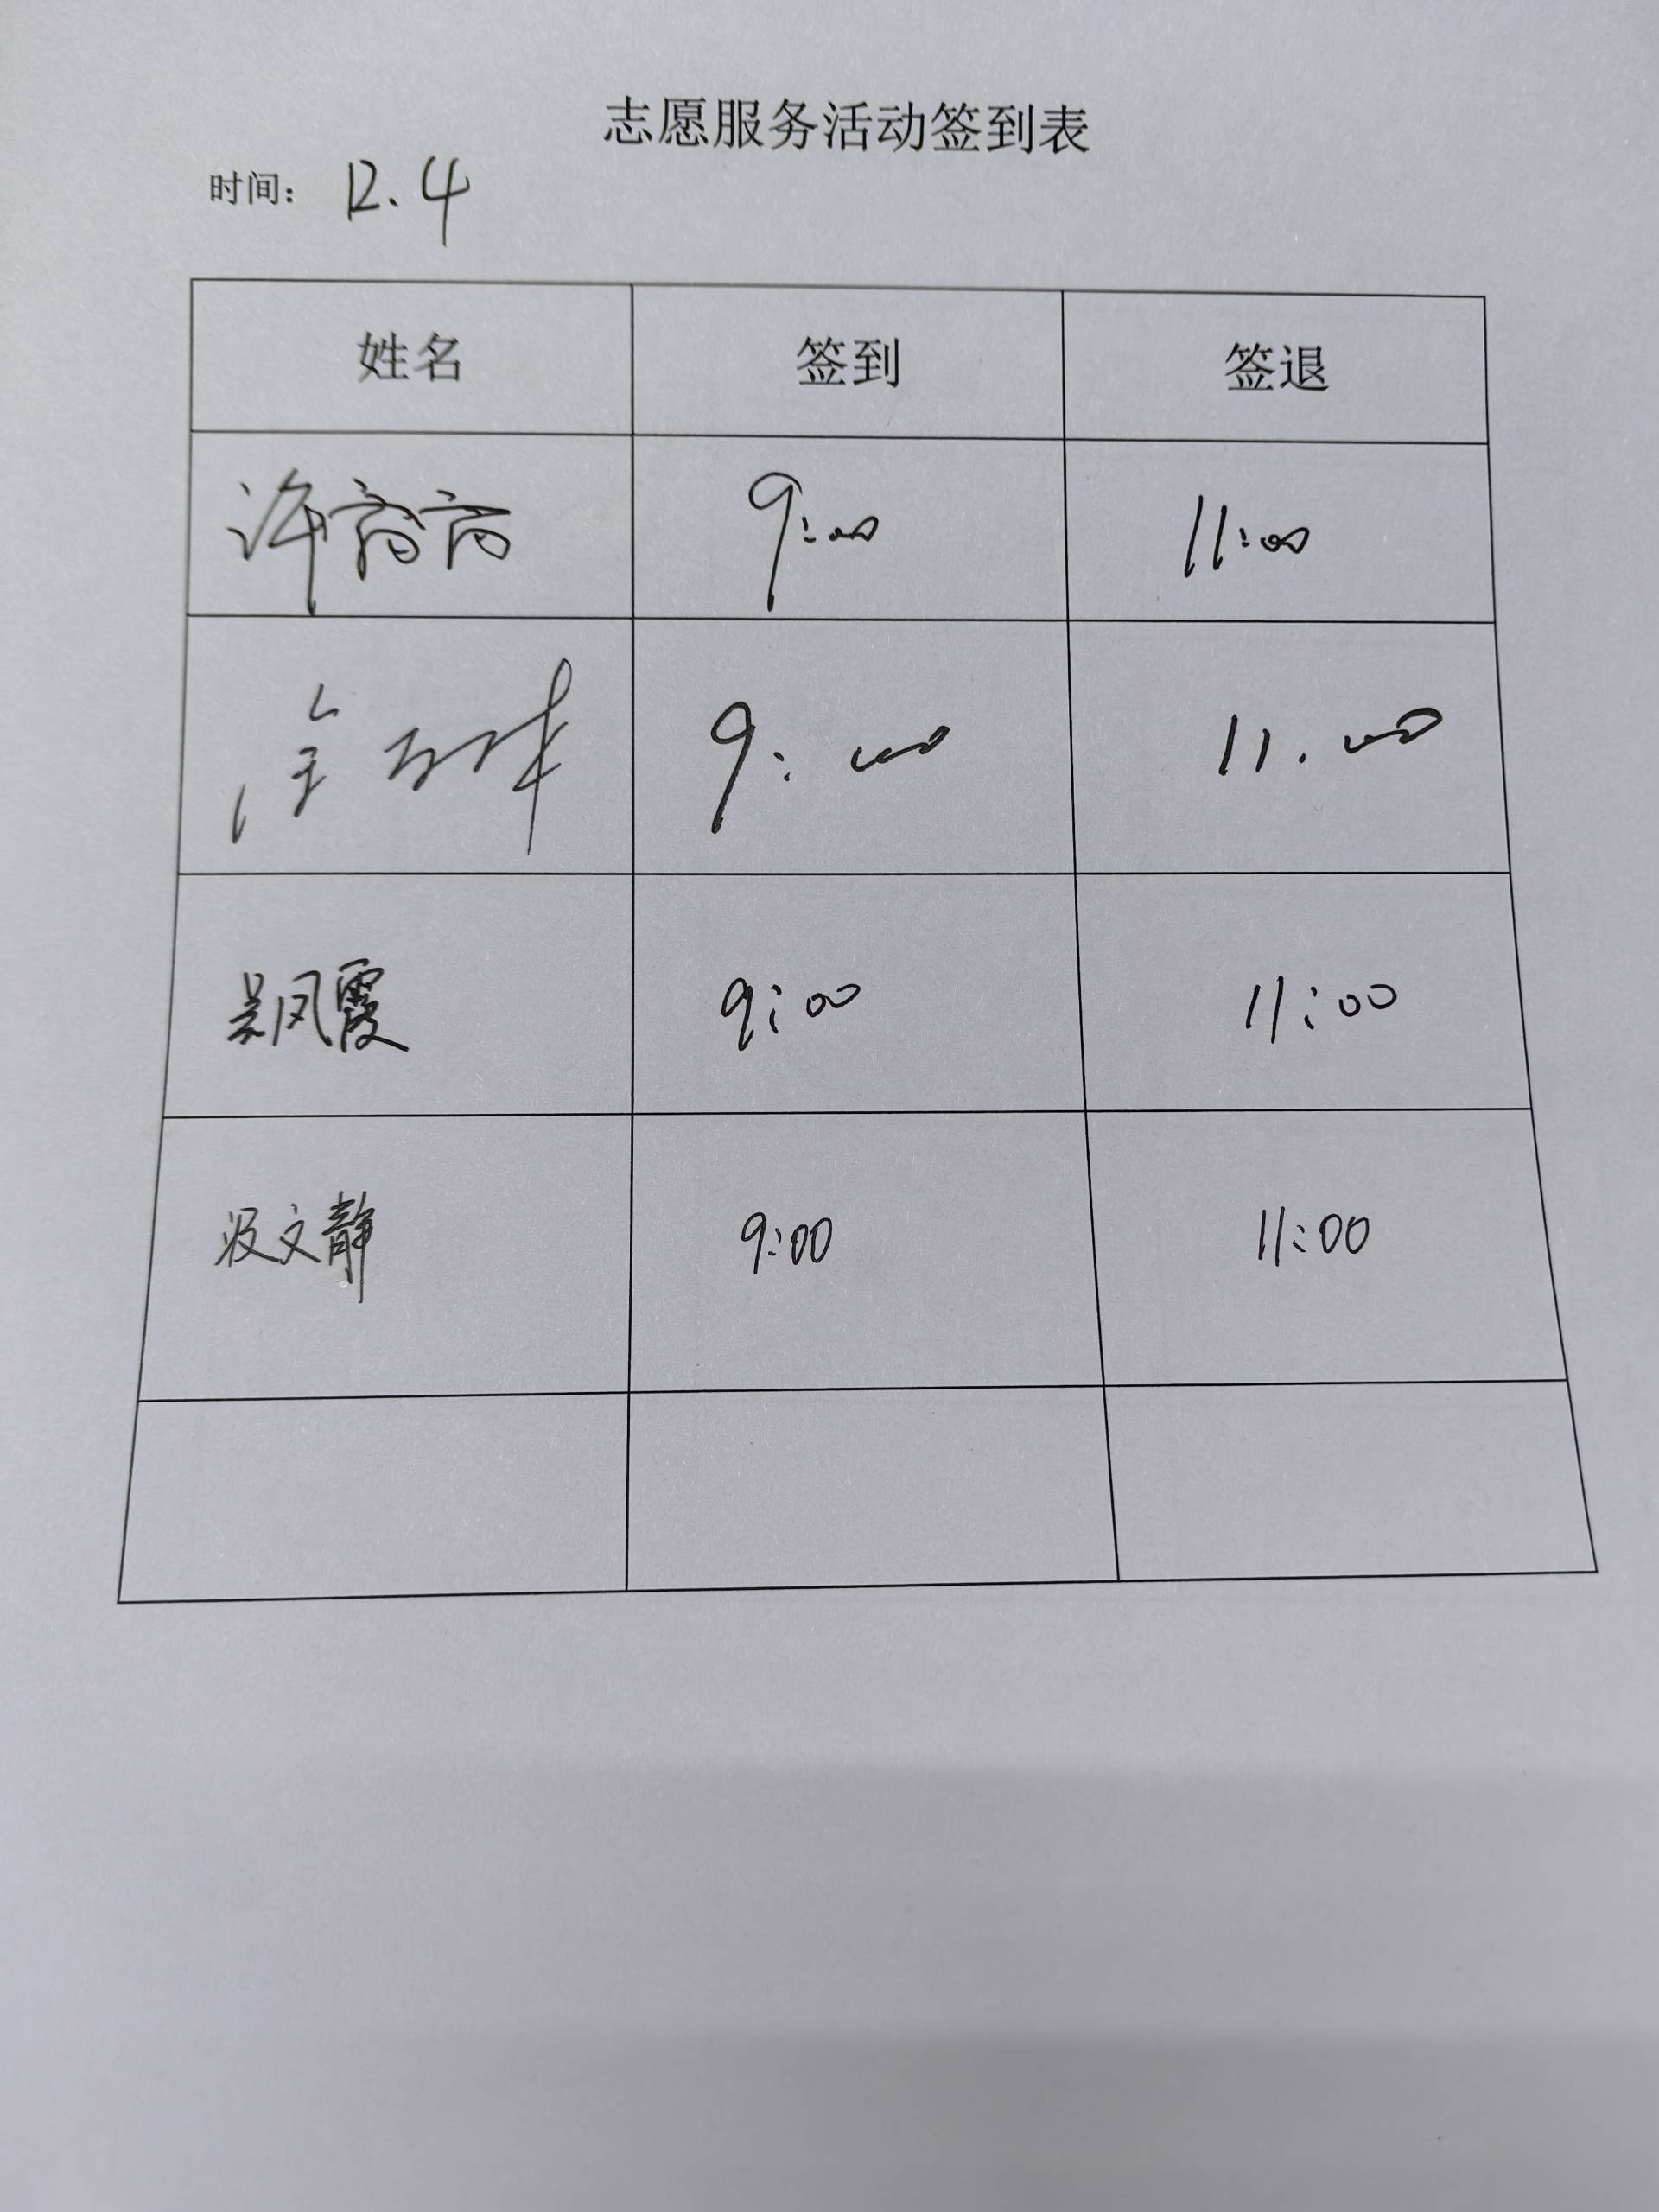 志愿服务活动签到表
时间： 12.4
姓名 签到 签退
许 9:00 11:00
9:00 11.00
吴凤霞 9:00 11:00
汲文静 9:00 11:00